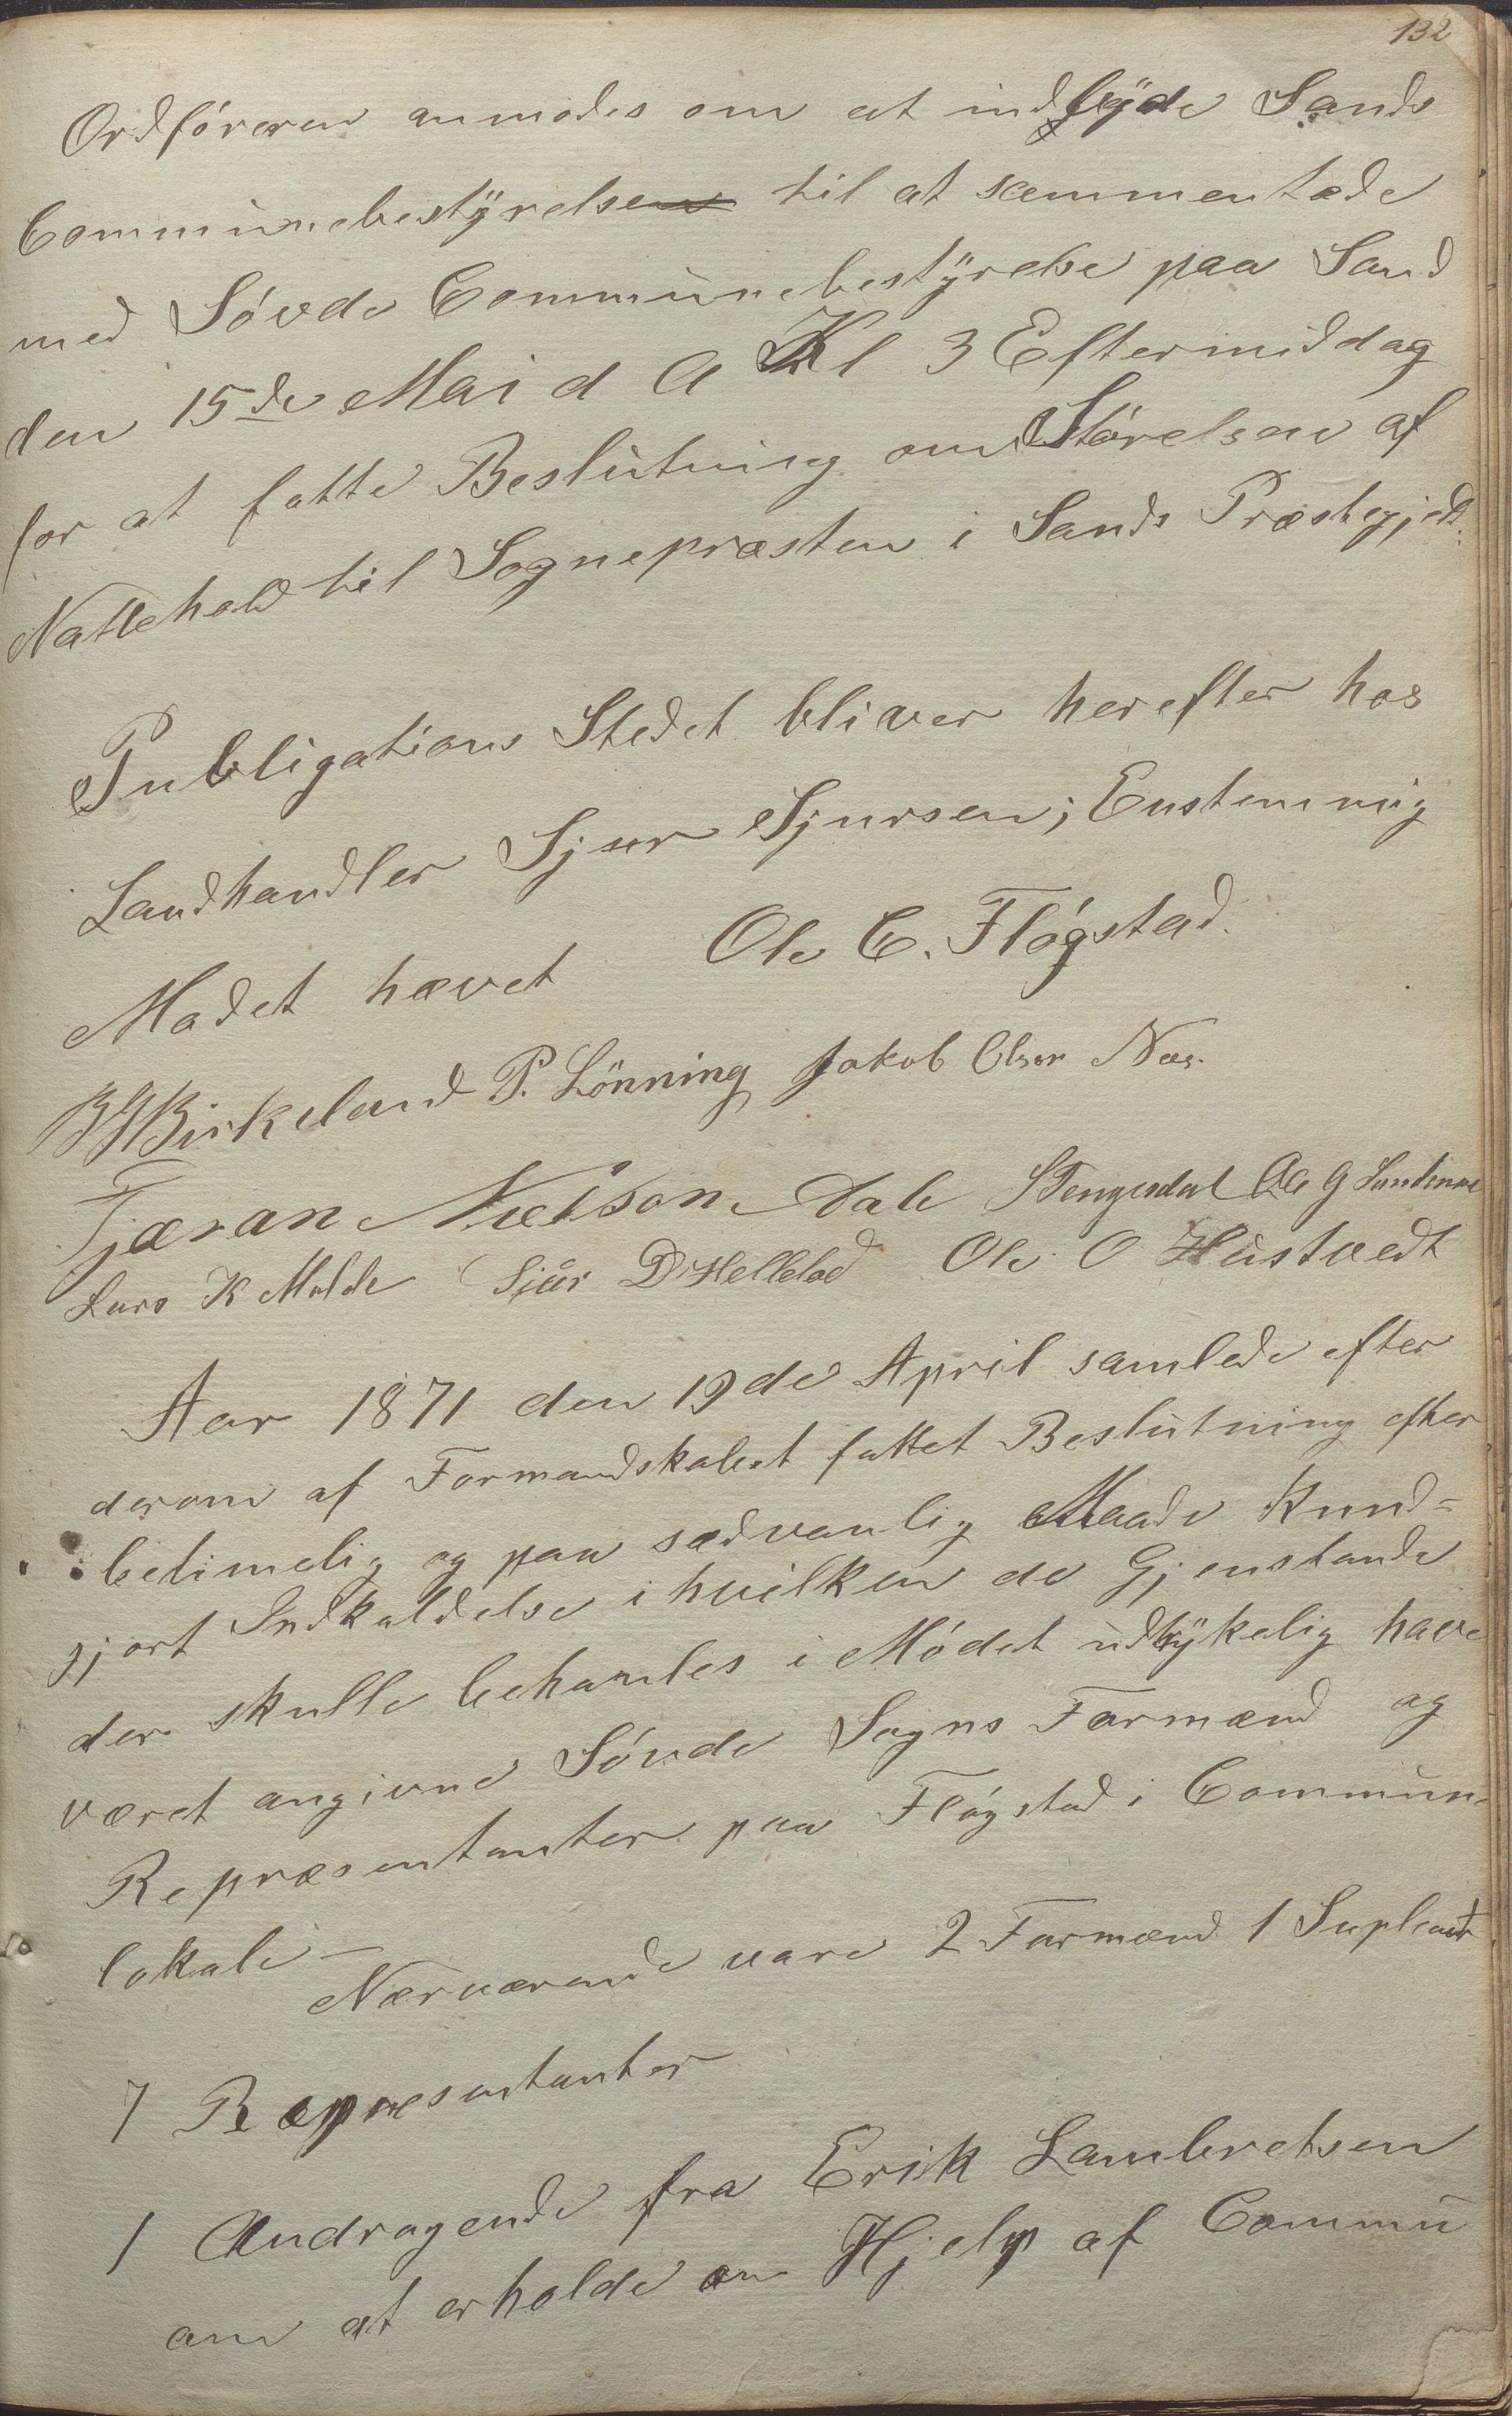 132
Ordføreren anmodes om at indbyde Sands
Communebestyrelse til at sammentræde
med Søvde Communebestyrelse paa Sand
den 15de Mai d A Kl 3 Eftermiddag
for at fatte Beslutning om Størelsen af
Nattehold til Sognepræsten i Sands Præstegjeld.
Publigations Stedet bliver herefter hos
Landhandler Sjur Sjursen; Enstemmig
Mødet hævet Ole C. Fløgstad.
Birkeland P. Lönning Jakob Olsen Næs.
Tjæran Nielson Dale Stengesdal Ole G
Lars K Molde Sjur D Helleland Ole O Hustvedt
Aar 1871 den 19de April samlede efter
derom af Formandskabet fattet Beslutning efter
betimelig og paa sædvanlig Maade Kund-
gjort Indkaldelse i hvilken de Gjenstande
der skulle behanles i Mødet udtrykelig have
været angivne Søvde Sogns Formænd og
Repræsentanter paa Fløgstad i Commune
lokale —
Nærværende vare 2 Formænd 1 Supleant
7 Repræsentanter
1 Andragende fra Erik Lambretsen
om at erholde en Hjelp af Commu